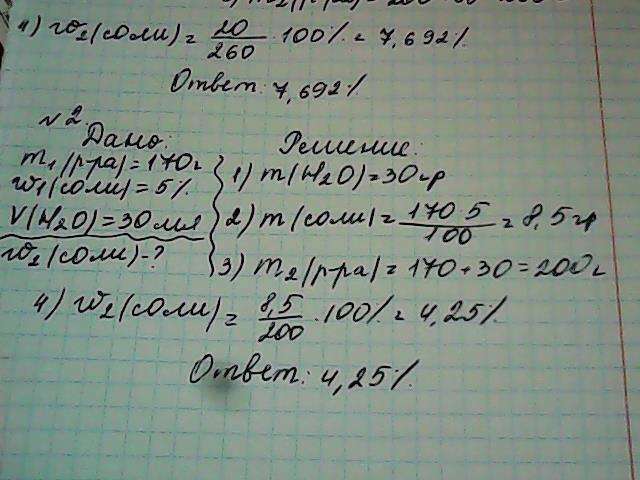 4) w₂(соли) = 20/260 · 100% = 7,692%
Ответ: 7,692%
№2.
Дано:
m₁(р-ра) = 170г
w₁(соли) = 5%
V(H₂O) = 30мл
w₂(соли) - ?
Решение:
1) m(H₂O) = 30гр
2) m(соли) = 170 5/100 = 8,5гр
3) m₂(р-ра) = 170 + 30 = 200г
4) w₂(соли) = 8,5/200 · 100% = 4,25%
Ответ: 4,25%